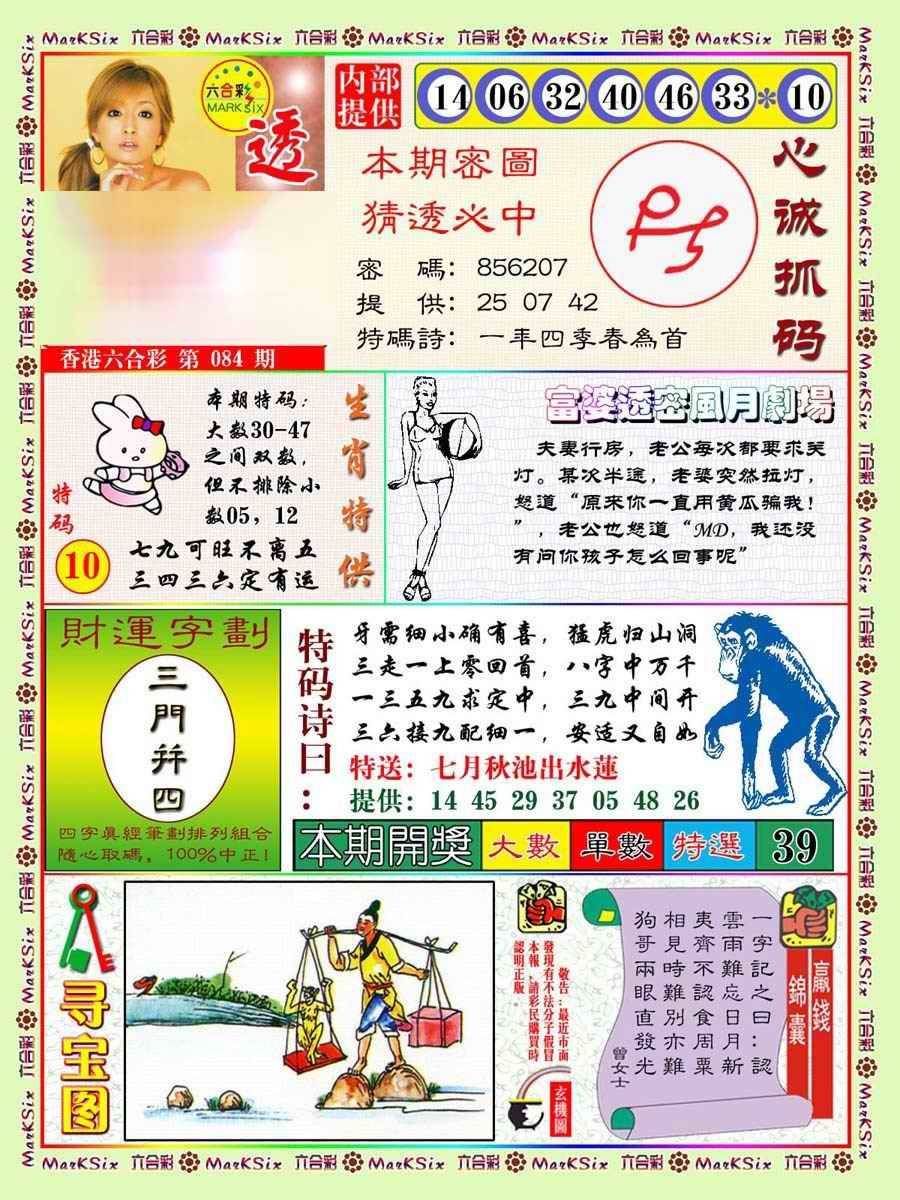 MarKSix 六合彩 MarKSix 六合彩 MarKSix 六合彩 MarKSix 六合彩 MarKSix 六合彩
六合彩
MARK SIX
透
内部
提供
14 06 32 40 46 33 * 10
本期密圖
猜透必中
密 碼: 856207
提 供: 25 07 42
特碼詩: 一年四季春為首
心诚抓码
香港六合彩 第 084 期
本期特码:
大数30-47
之间双数,
但不排除小
数05, 12
特码
10
七九可旺不离五
三四三六定有运
生肖特供
富婆透密風月劇場
夫妻行房, 老公每次都要求关
灯。某次半途, 老婆突然拉灯,
怒道“原来你一直用黄瓜骗我!
”, 老公也怒道“MD, 我还没
有问你孩子怎么回事呢”
財運字劃
三門并四
四字真經筆劃排列組合
隨心取碼, 100%中正!
特码诗曰:
牙需细小确有喜, 猛虎归山洞
三走一上零回首, 八字中万千
一三五九求定中, 三九中间开
三六接九配细一, 安适又自如
特送: 七月秋池出水蓮
提供: 14 45 29 37 05 48 26
本期開獎 大數 單數 特選 39
寻宝图
敬告:最近市面
發現有不法分子假冒
本報,請彩民購買時
認明正版。
玄機圖
贏錢
錦囊
一字記之曰:認
雲雨難忘日月新
夷齊不認食周粟
相見時難別亦難
狗哥兩眼直發光
曾女士
MarKSix 六合彩 MarKSix 六合彩 MarKSix 六合彩 MarKSix 六合彩 MarKSix 六合彩